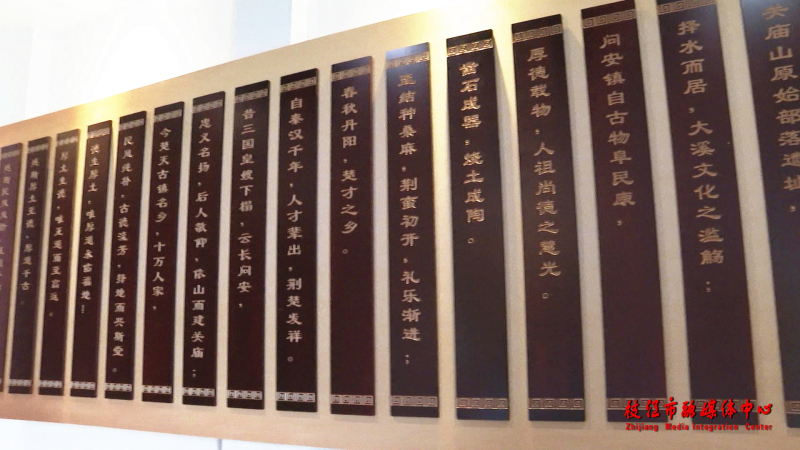 关庙山原始部落遗址，
择水而居，大溪文化之滥觞；
问安镇自古物阜民康，
厚德载物，人祖尚德之慧光。
凿石成器，烧土成陶。
结种桑麻，荆蛮初开，礼乐渐进；
春秋丹阳，楚才之乡。
自秦汉千年，人才辈出，荆楚发祥。
昔三国皇嫂下榻，云长问安，
忠义名扬，后人敬仰，依山而建关庙；
今楚天古镇名乡，十万人家，
民风纯朴，古德流芳，择地而兴斯
德生厚土，唯厚道永富
厚土生德，唯正道而至富
厚土至德，厚道千古。
枝江市融媒体中心
Zhijiang Media Integration Center